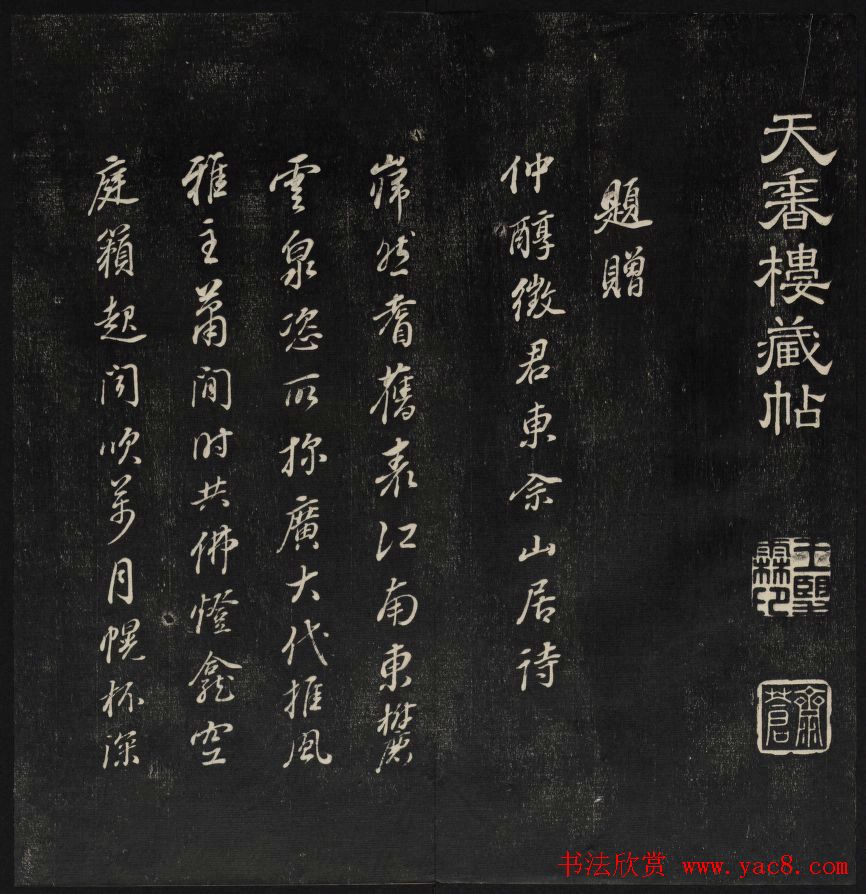 天香樓藏帖
王望霖印
題贈
仲醇徵君東佘山居詩
巋然耆舊表江南東麓
雲泉恣所探廣大代推風
雅主蕭閒時共佛燈龕空
庭籟起聞吹萬月幌杯深
书法欣赏 www.yac8.com